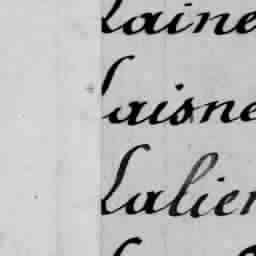 Laine
Laisne
Lalier